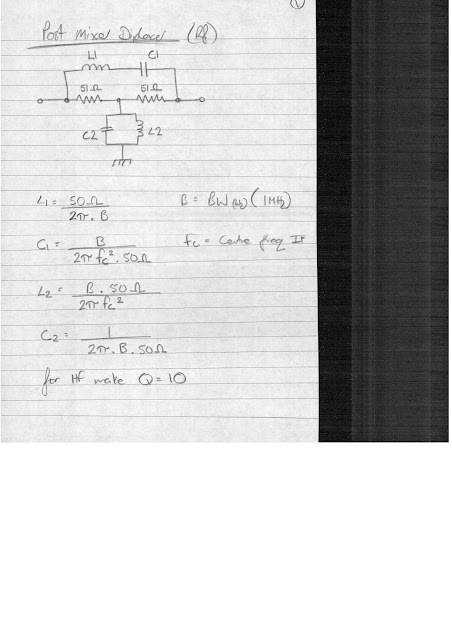 Post Mixer Diplexer (Rf)
L1 C1
51Ω 51Ω
C2 L2
L1 = 50Ω / 2π . B
B = BW (Hz) (1MHz)
C1 = B / 2π fc² . 50Ω
fc = Centre freq IF
L2 = B . 50Ω / 2π fc²
C2 = 1 / 2π . B . 50Ω
for HF make Q = 10